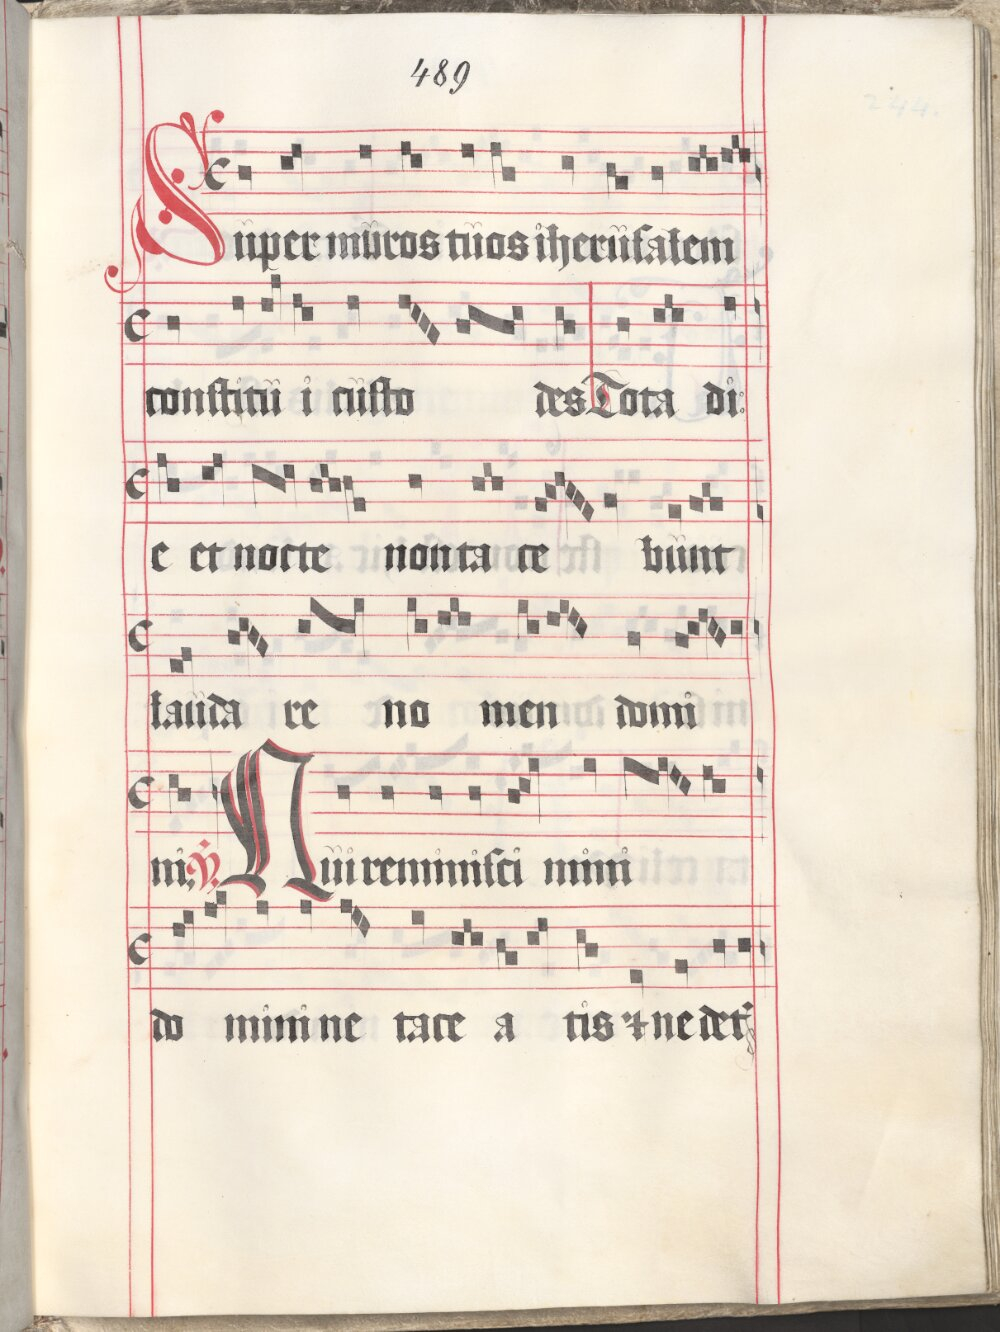 489
244.
Super muros tuos iherusalem
constitu i custo des Tota di
e et nocte non ta ce bunt
lauda re no men domi
ni. ℣. Qui reminisci mini
do mini ne tace a tis & ne det